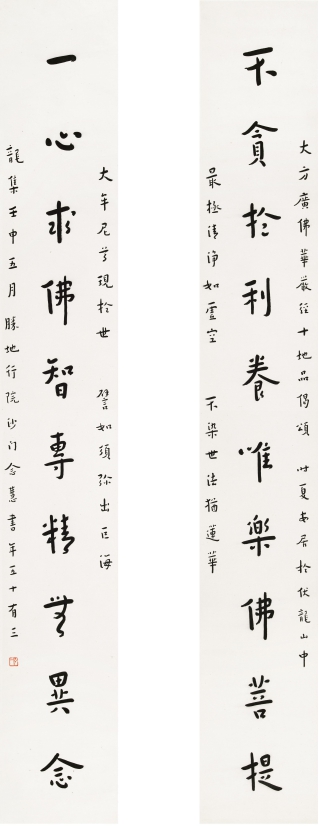 大方廣佛華嚴經十地品偈頌 时夏安居於伏龍山中
不貪於利養唯樂佛菩提
最極清淨如虛空 不染世法猶蓮華
大牟尼尊現於世 譬如須弥出巨海
一心求佛智專精無異念
龍集壬申五月勝地行院沙门念慧書年五十有三